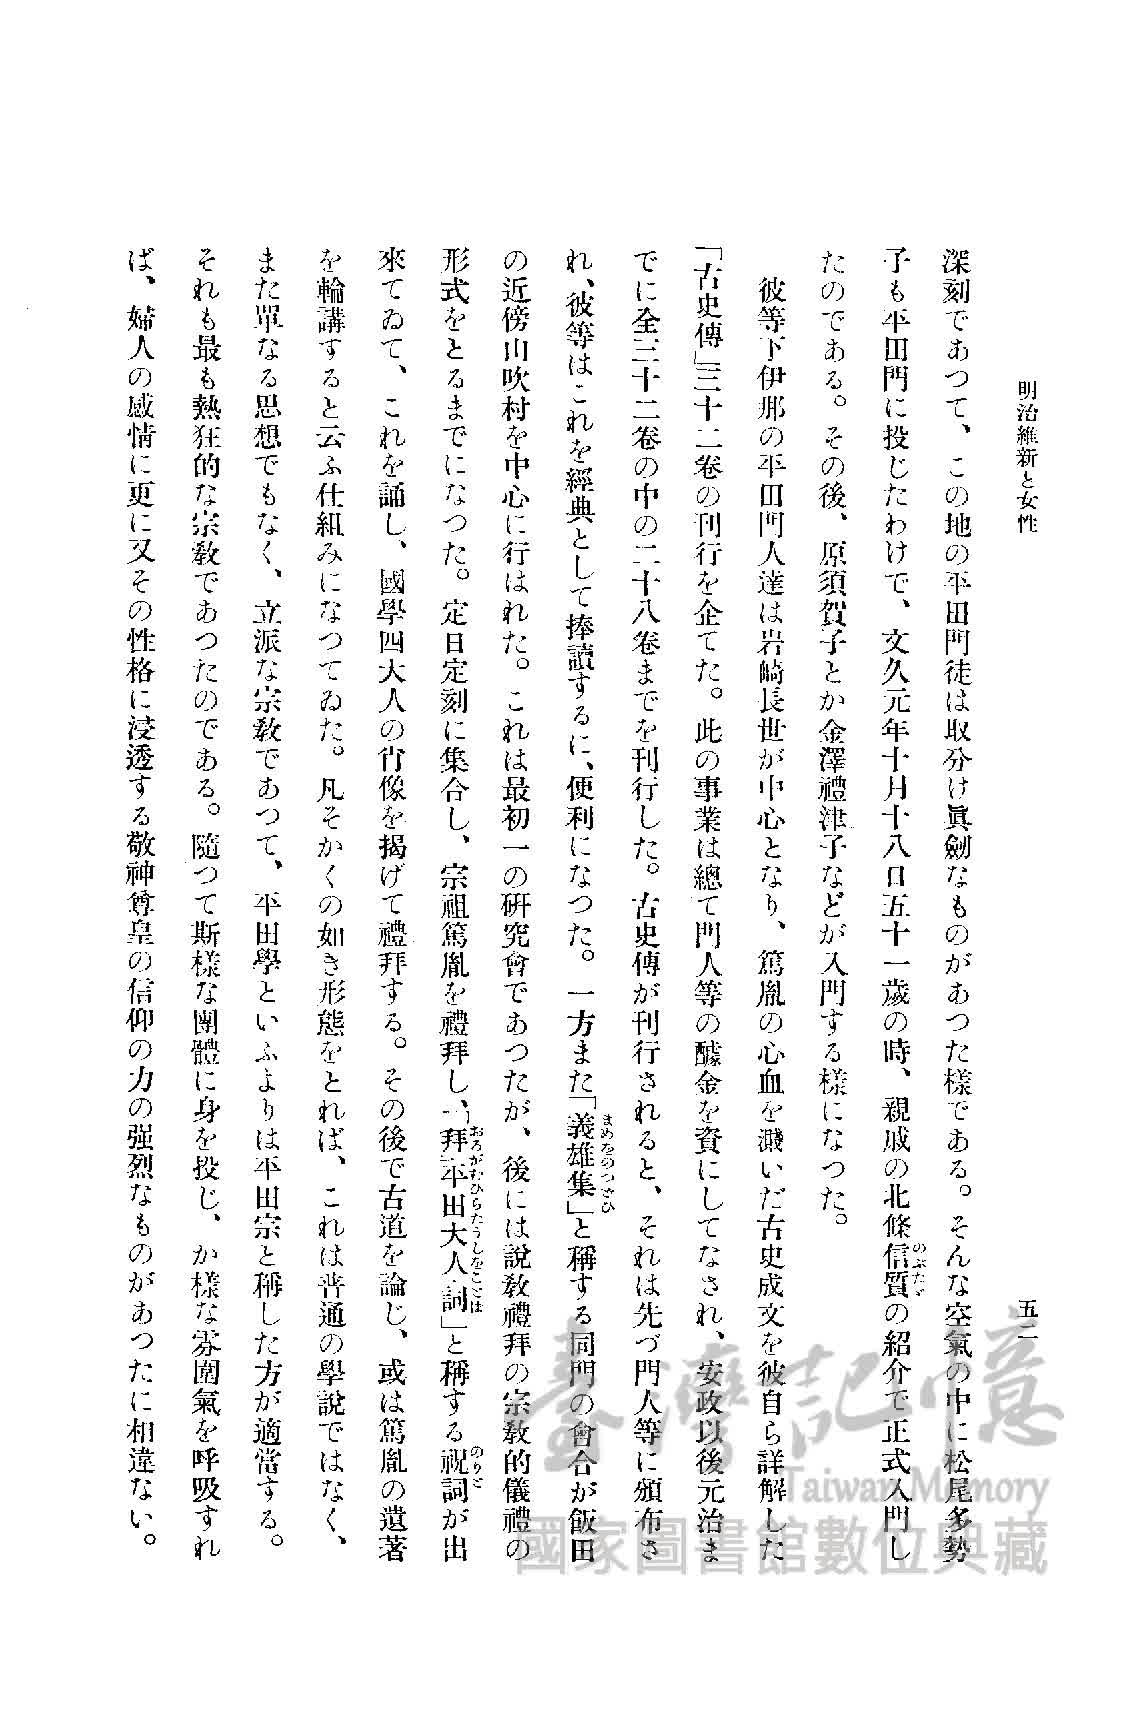 明治維新と女性
五二
深刻であつて、この地の平田門徒は取分け眞劍なものがあつた樣である。そんな空氣の中に松尾多勢
子も平田門に投じたわけで、文久元年十月十八日五十一歲の時、親戚の北條信質の紹介で正式入門し
のぶたゞ
たのである。その後、原須賀子とか金澤禮津子などが入門する樣になつた。
彼等下伊那の平田門人達は岩崎長世が中心となり、篤胤の心血を濺いだ古史成文を彼自ら詳解した
「古史傳」三十二卷の刊行を企てた。此の事業は總て門人等の醵金を資にしてなされ、安政以後元治ま
でに全三十二卷の中の二十八卷までを刊行した。古史傳が刊行されると、それは先づ門人等に頒布さ
れ、彼等はこれを經典として捧讀するに、便利になつた。一方また「義雄集」と稱する同門の會合が飯田
まめをのつどひ
の近傍山吹村を中心に行はれた。これは最初一の硏究會であつたが、後には說敎禮拜の宗敎的儀禮の
形式をとるまでになつた。定日定刻に集合し、宗祖篤胤を禮拜し、「拜平田大人詞」と稱する祝詞が出
おろがむひらたうしをことは
のりと
來てゐて、これを誦し、國學四大人の肖像を揭げて禮拜する。その後で古道を論じ、或は篤胤の遺著
を輪講すると云ふ仕組みになつてゐた。凡そかくの如き形態をとれば、これは普通の學說ではなく、
また單なる思想でもなく、立派な宗敎であつて、平田學といふよりは平田宗と稱した方が適當する。
それも最も熱狂的な宗敎であつたのである。隨つて斯樣な團體に身を投じ、か樣な雰圍氣を呼吸すれ
ば、婦人の感情に更に又その性格に浸透する敬神尊皇の信仰の力の强烈なものがあつたに相違ない。
臺灣記憶
Taiwan Memory
國家圖書館數位典藏